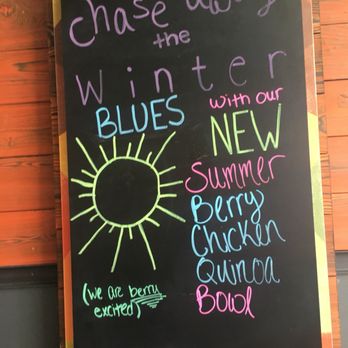 chase away
the
Winter
BLUES
with our
NEW
Summer
Berry
Chicken
Quinoa
Bowl
(we are berry
excited)